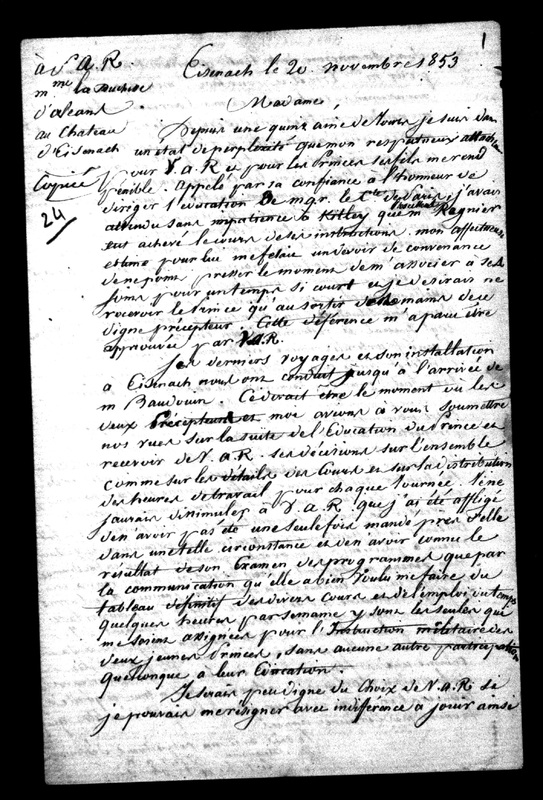 1
à S. A. R.
mme la Duchesse
d'orléans
au Chateau
d'Eisenach
Copiée
24
Eisenach le 20 novembre 1853
Madame,
Depuis une quinzaine de jours je suis dans
un état de perplexité que mon respectueux attachement
pour V.A.R et pour les Princes ses fils me rend
pénible. Appelé par sa confiance à l'honneur de
diriger l'éducation de mgr. le Cte de Paris, j'avais
attendu sans impatience à Kitley que m Regnier
eut achevé le cours de ses instructions. mon affectueuse
estime pour lui me faisait un devoir de convenance
de ne point presser le moment de m'associer à ses
soins pour un temps si court et je désirais ne
recevoir le Prince qu'au sortir des mains de ce
digne précepteur. Cette déférence m'a paru être
approuvée par V.A.R.
Les derniers voyages et son installation
à Eisenach nous ont conduit jusqu'à l'arrivée de
m Baudouin. C'était être le moment où les
deux Précepteurs et moi avions à vous soumettre
nos vues sur la suite de l'Education du Prince et
recevoir de V.A.R. ses décisions sur l'ensemble
comme sur les détails des Cours et sur la distribution
des heures de travail pour chaque journée. Je ne
saurais dissimuler à V.A.R. que j'ai été affligé
de n'avoir pas été une seule fois mandé près d'elle
dans une telle circonstance et de n'avoir connu le
résultat de son Examen des programmes que par
la communication qu'elle a bien voulu me faire du
tableau définitif des divers cours et de l'emploi du temps
quelques heures par semaine y sont les seules qui
me soient assignées pour l'Instruction militaire des
deux jeunes Princes, sans aucune autre participation
quelconque à leur Education.
Je serais peu digne du Choix de V.A.R si
je pouvais me résigner avec indifférence à jouir ainsi